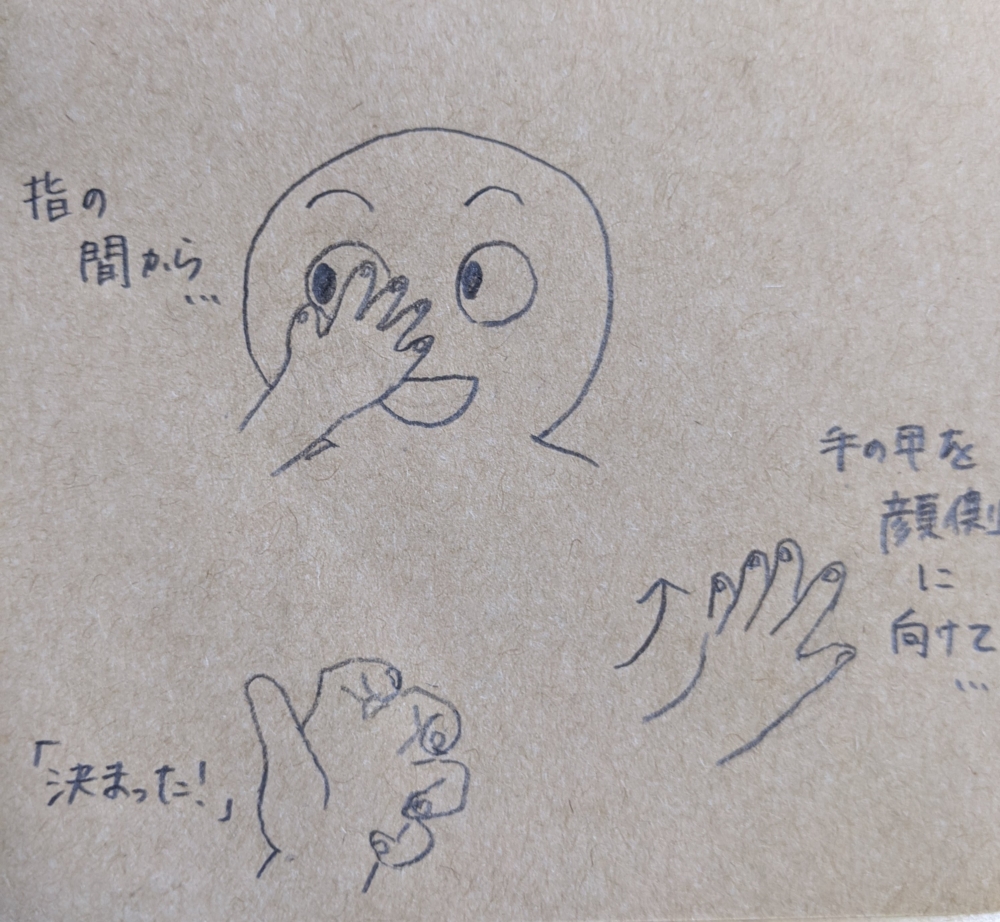 指の
間から
…
手の甲を
顔側
に
向けて
…
「決まった!」